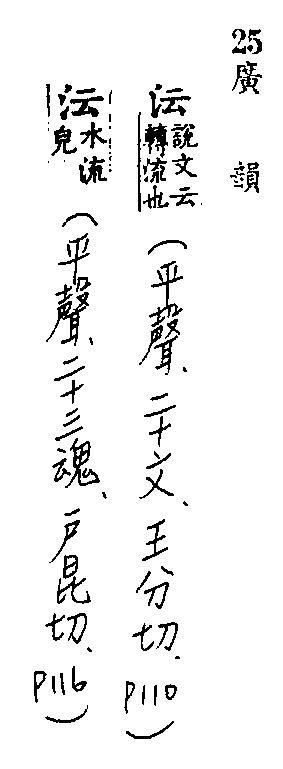 25廣韻
沄說文云轉流也(平聲、二十文、王分切、P110)
沄水流皃(平聲、二十三魂、戸昆切、P116)